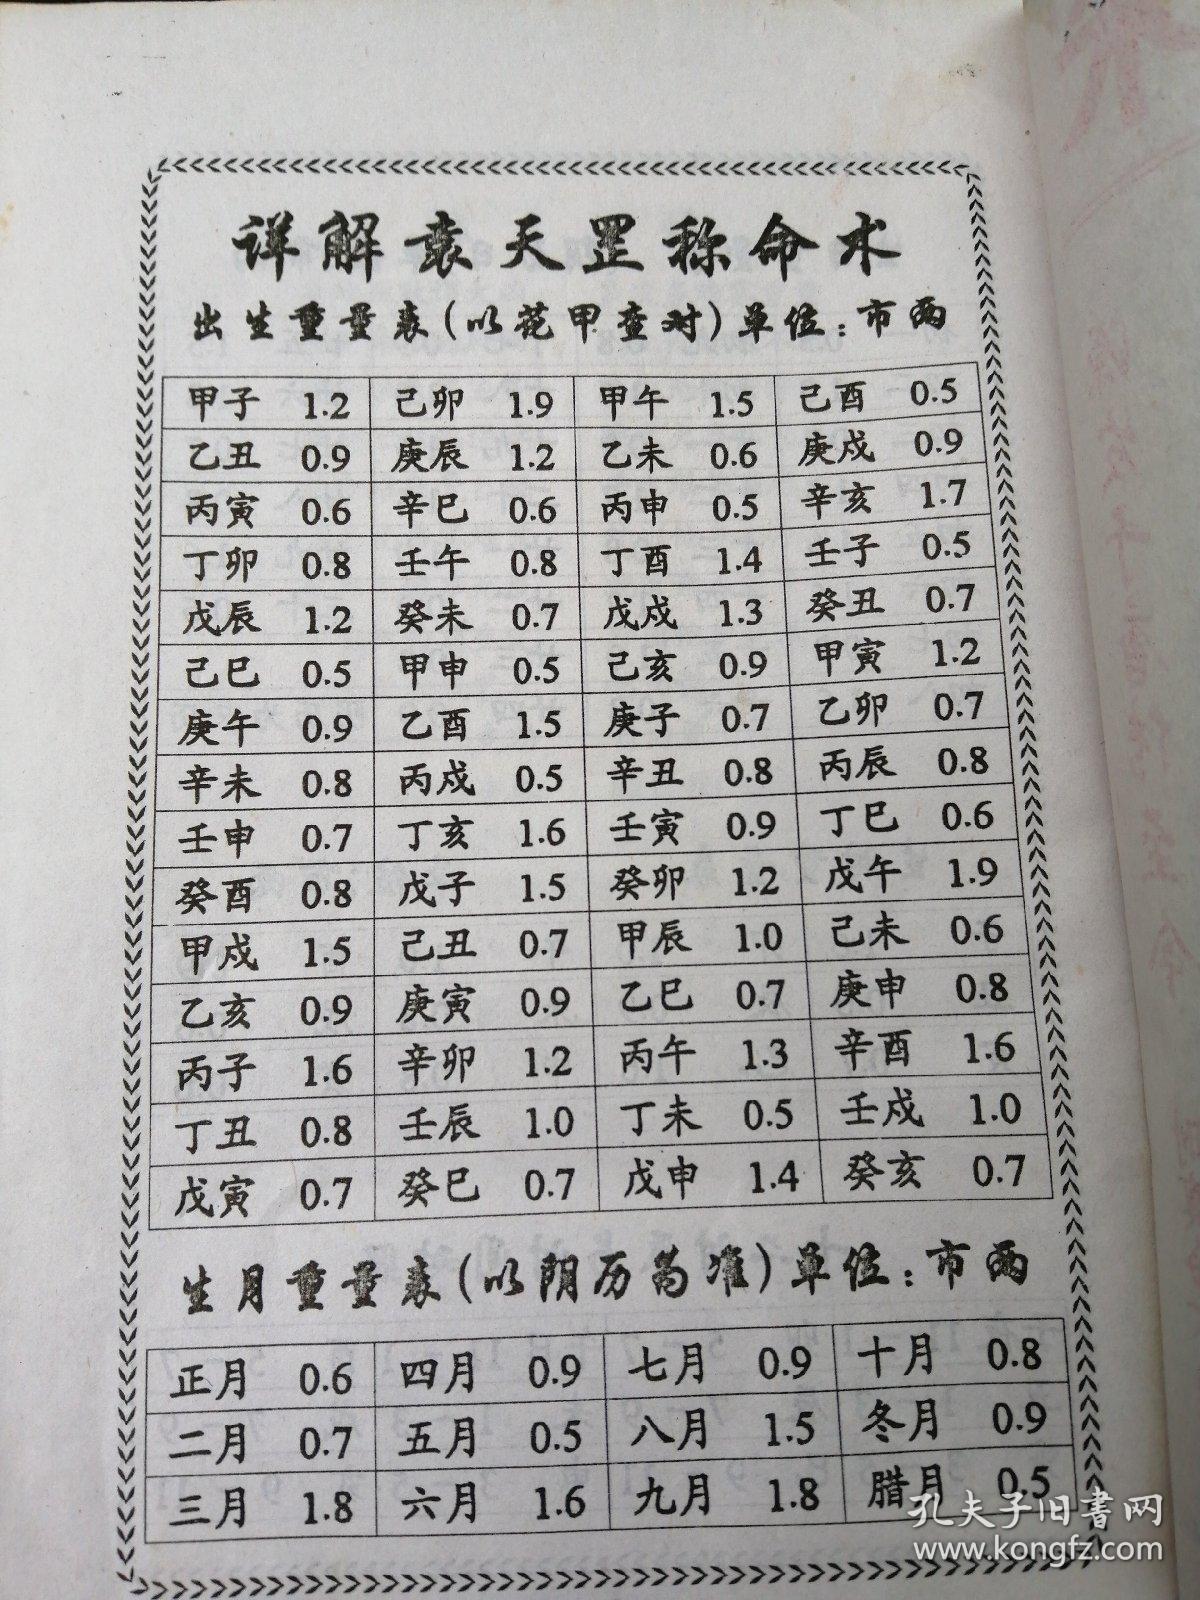 详解袁天罡称命术
出生重量表(以花甲查对)单位:市两
甲子 1.2 己卯 1.9 甲午 1.5 己酉 0.5
乙丑 0.9 庚辰 1.2 乙未 0.6 庚戍 0.9
丙寅 0.6 辛巳 0.6 丙申 0.5 辛亥 1.7
丁卯 0.8 壬午 0.8 丁酉 1.4 壬子 0.5
戊辰 1.2 癸未 0.7 戊戍 1.3 癸丑 0.7
己巳 0.5 甲申 0.5 己亥 0.9 甲寅 1.2
庚午 0.9 乙酉 1.5 庚子 0.7 乙卯 0.7
辛未 0.8 丙戍 0.5 辛丑 0.8 丙辰 0.8
壬申 0.7 丁亥 1.6 壬寅 0.9 丁巳 0.6
癸酉 0.8 戊子 1.5 癸卯 1.2 戊午 1.9
甲戍 1.5 己丑 0.7 甲辰 1.0 己未 0.6
乙亥 0.9 庚寅 0.9 乙巳 0.7 庚申 0.8
丙子 1.6 辛卯 1.2 丙午 1.3 辛酉 1.6
丁丑 0.8 壬辰 1.0 丁未 0.5 壬戍 1.0
戊寅 0.7 癸巳 0.7 戊申 1.4 癸亥 0.7
生月重量表(以阴历为准)单位:市两
正月 0.6 四月 0.9 七月 0.9 十月 0.8
二月 0.7 五月 0.5 八月 1.5 冬月 0.9
三月 1.8 六月 1.6 九月 1.8 腊月 0.5
孔夫子旧書网
www.kongfz.com